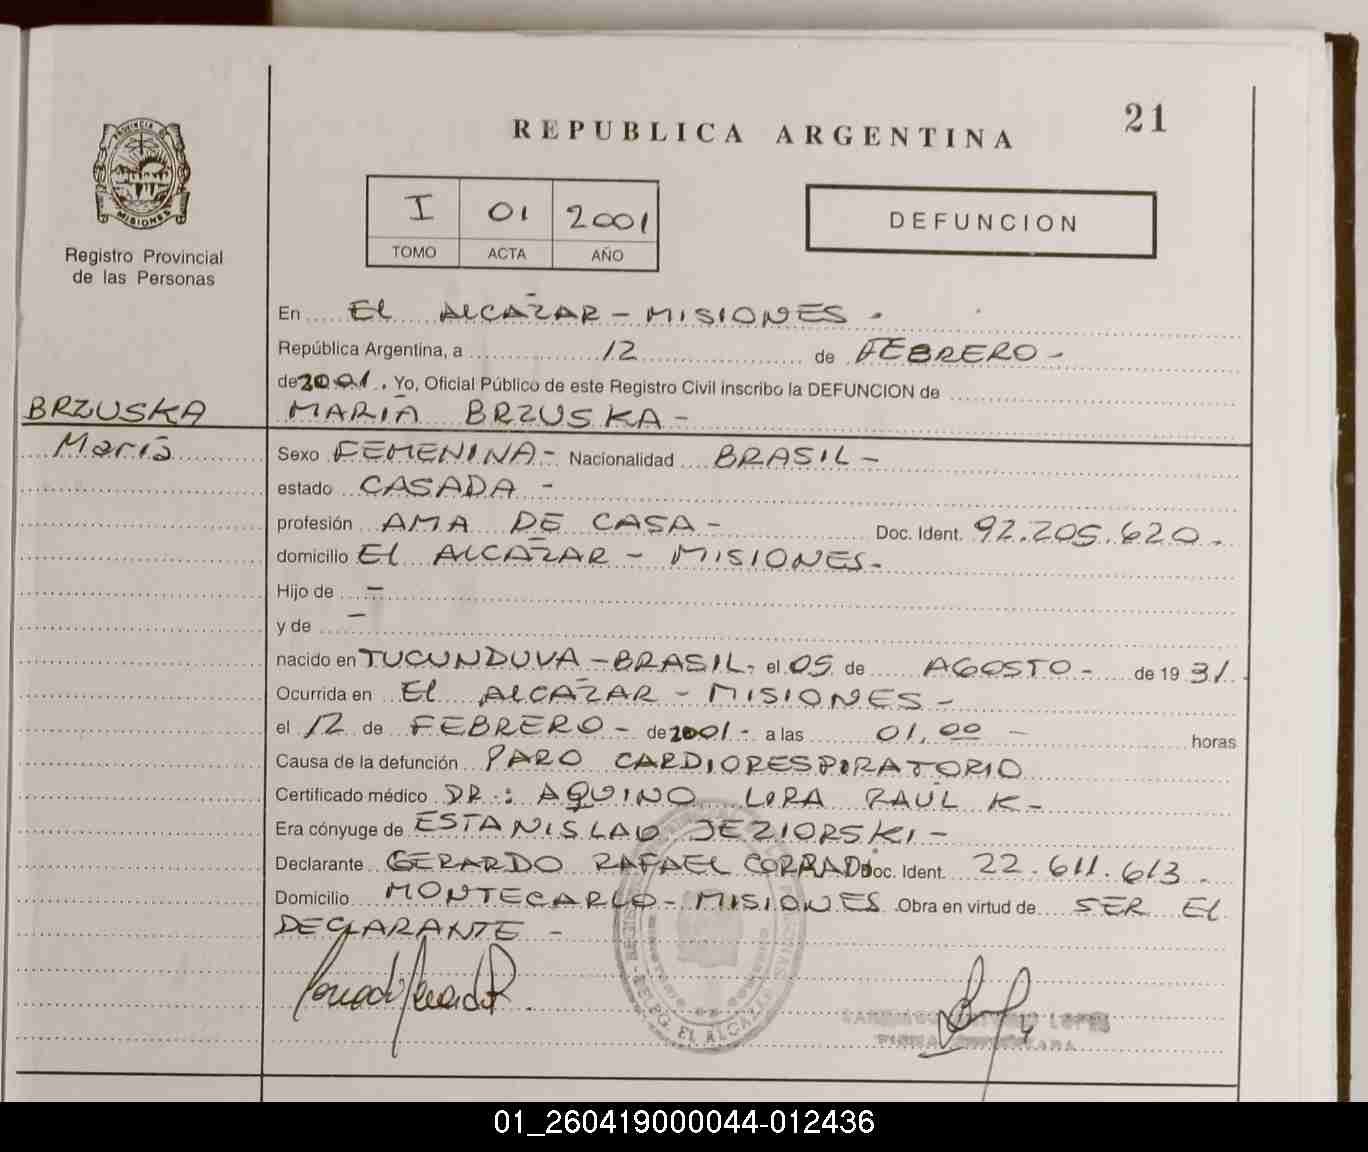 21
REPUBLICA ARGENTINA
PROVINCIA DE
MISIONES
Registro Provincial
de las Personas
I 01 2001
TOMO ACTA AÑO
DEFUNCION
En El ALCAZAR - MISIONES -
República Argentina, a 12 de FEBRERO -
de 2001. Yo, Oficial Público de este Registro Civil inscribo la DEFUNCION de
BRZUSKA MARIA BRZUSKA -
María
Sexo FEMENINA - Nacionalidad BRASIL -
estado CASADA -
profesión AMA DE CASA - Doc. Ident. 92.205.620 -
domicilio El ALCAZAR - MISIONES -
Hijo de -
y de -
nacido en TUCUNDUVA - BRASIL, el 05 de AGOSTO - de 19 31.
Ocurrida en El ALCAZAR - MISIONES -
el 12 de FEBRERO - de 2001 - a las 01,00 - horas
Causa de la defunción PARO CARDIORESPIRATORIO
Certificado médico DR.: AQUINO LORA RAUL K -
Era cónyuge de ESTANISLAO JEZIORSKI -
Declarante GERARDO RAFAEL CORRADI Doc. Ident. 22.611.613 -
Domicilio MONTECARLO - MISIONES Obra en virtud de SER El
DECLARANTE -
EL ALCAZAR
LOPEZ
01_260419000044-012436